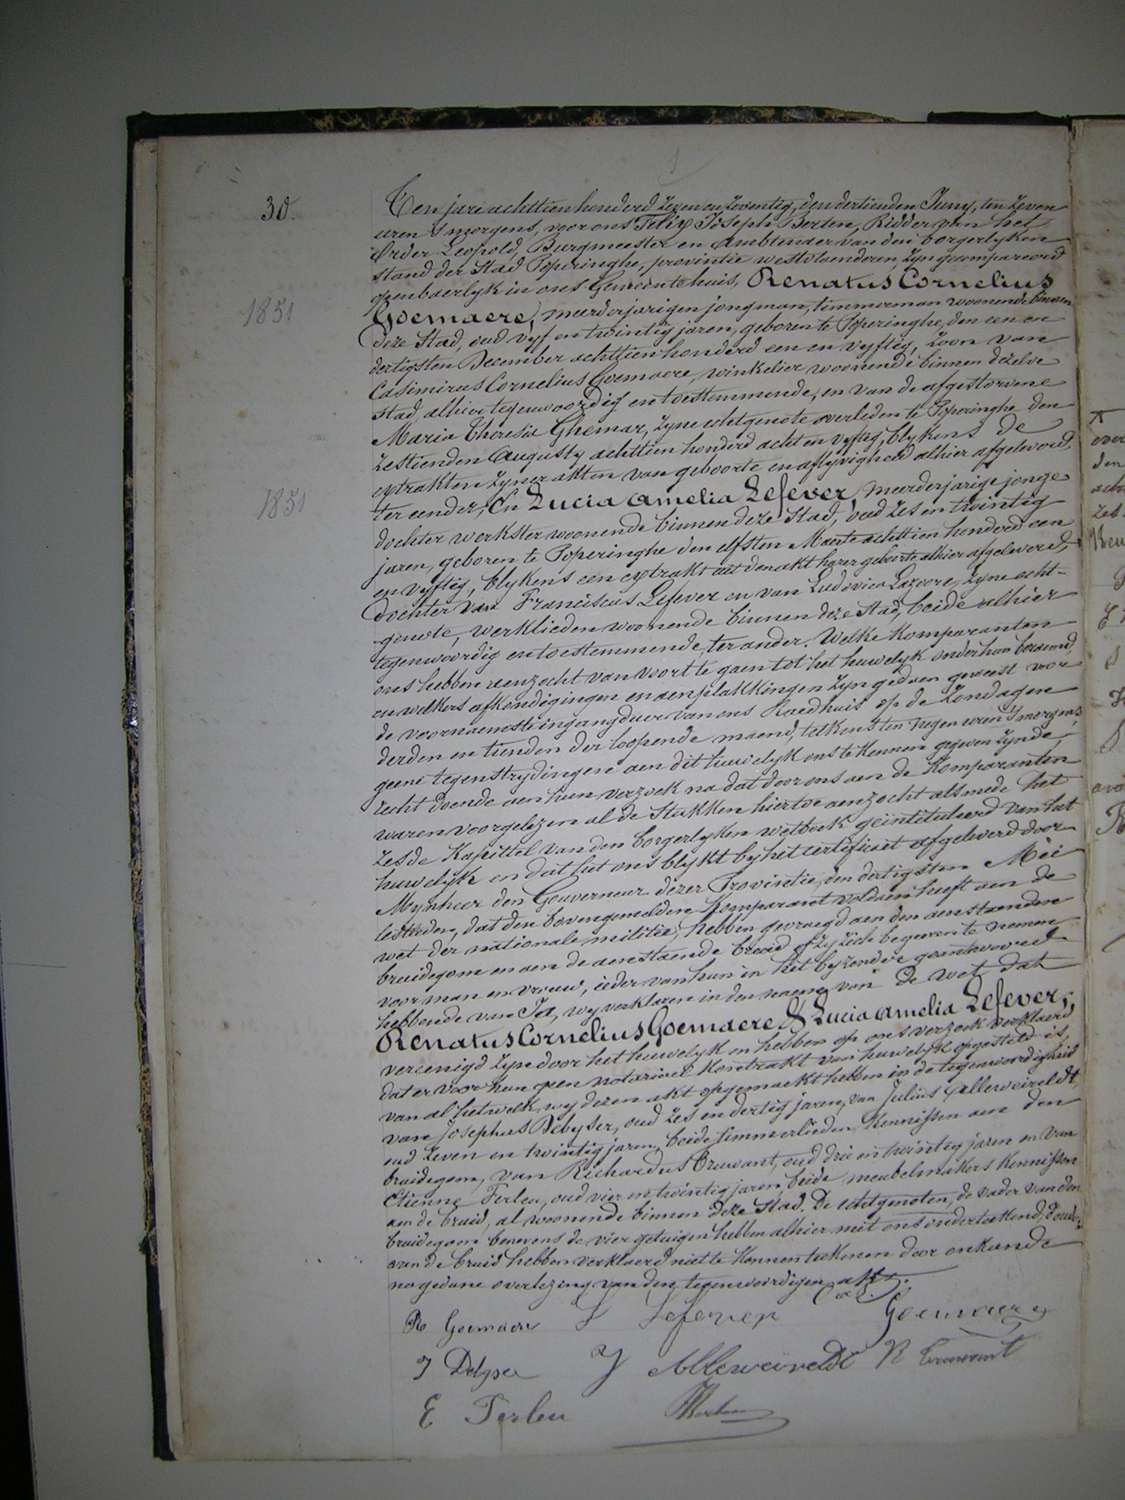 30.
Ten jare achttien honderd zeven en zeventig, den dertienden Juny, ten zeven
uren 's morgens, voor ons Felix Joseph Berten, Ridder van het
Order Leopold, Burgmeester en Ambtenaer van den borgerlyken
stand der Stad Poperinghe, provintie westvlaenderen, zyn gecompareerd
openbaerlyk in ons Gemeentehuis, Renatus Cornelius
1851
Goemaere, meerderjarigen jongman, timmerman woonende binnen
deze Stad, oud vyf en twintig jaren, geboren te Poperinghe, den een en
dertigsten December achttien honderd een en vyftig, zoon van
Casimirus Cornelius Goemaere, winkelier woonende binnen dezelve
stad, alhier tegenwoordig en toestemmende, en van de afgestorvene
Maria Theresia Ghemar, zyne echtgenote overleden te Poperinghe den
zestienden Augusty achttien honderd acht en vyftig, blykens de
extrakten zyner akten van geboorte en aflyvigheid alhier afgeleverd,
1851
ter eender, En Lucia Amelia Lefever, meerderjarige jonge
dochter werkster woonende binnen deze Stad, oud zes en twintig
jaren, geboren te Poperinghe den elfsten Maerte achttien honderd een
en vyftig, blykens een extrakt uit den akt harer geboorte alhier afgeleverd,
dochter van Franciscus Lefever en van Ludivica Lazeere, zyne echt-
genote, werklieden woonende binnen deze Stad, beide alhier
tegenwoordig en toestemmende, ter ander. Welke Komparanten
ons hebben aenzocht van voort te gaen tot het huwelyk onder hun beraemd,
en welkers afkondigingen en aenplakkingen zyn gedaen geweest voor
de voornaemste ingangdeur van ons Raedhuis op de Zondagen
derden en tienden der loopende maend, telkens ten negen uren 's morgens,
geene tegenstrydingen aen dit huwelyk ons te kennen gegeven zynde,
recht doende aen hun verzoek na dat door ons aen de Komparanten
waren voorgelezen al de Stukken hiertoe aenzocht alsmede het
zesde Kapittel van den borgerlyken wetboek geïntituleerd van het
huwelyk en dat het ons blykt by het certificaet afgeleverd door
Mynheer den Gouverneur dezer Provintie, den dertigsten Mei
lestleden, dat den bovengemelden Komparant voldaen heeft aen de
wet der nationale militie, hebben gevraegd aen den aenstaenden
bruidegom en aen de aenstaende bruid of zy zich begeeren te nemen
voor man en vrouw, ieder van hun in het byzonder geantwoord
hebbende van Ja, wy verklaren in den naeme van de wet dat
Renatus Cornelius Goemaere & Lucia Amelia Lefever,
vereenigd zyn door het huwelyk en hebben op ons verzoek verklaerd
dat er voor hun geen notarieel Kontrakt van huwelyk opgesteld is,
van al hetwelk wy dezen akt opgemaekt hebben in de tegenwoordigheid
van Josephus Debyser, oud zes en dertig jaren, van Julius Alleweireldt,
oud zeven en twintig jaren, beide timmerlieden Kennissen aen den
bruidegom, van Richardus Bruwant, oud drie en twintig jaren en van
Etienne Terleu, oud vier en twintig jaren, beide meubelmakers Kennissen
aen de bruid, al woonende binnen deze Stad. De echtgenoten, de vader van den
bruidegom benevens de vier getuigen hebben alhier met ons ondertekend, d'ouders
van de bruid hebben verklaerd niet te konnen teekenen door onkunde
na gedane overlezing van den tegenwoordigen akt.
R Goemaere L Lefever Cas. Goemaere
J Debyser J Alleweireldt R Bruwant
E Terleu FBerten